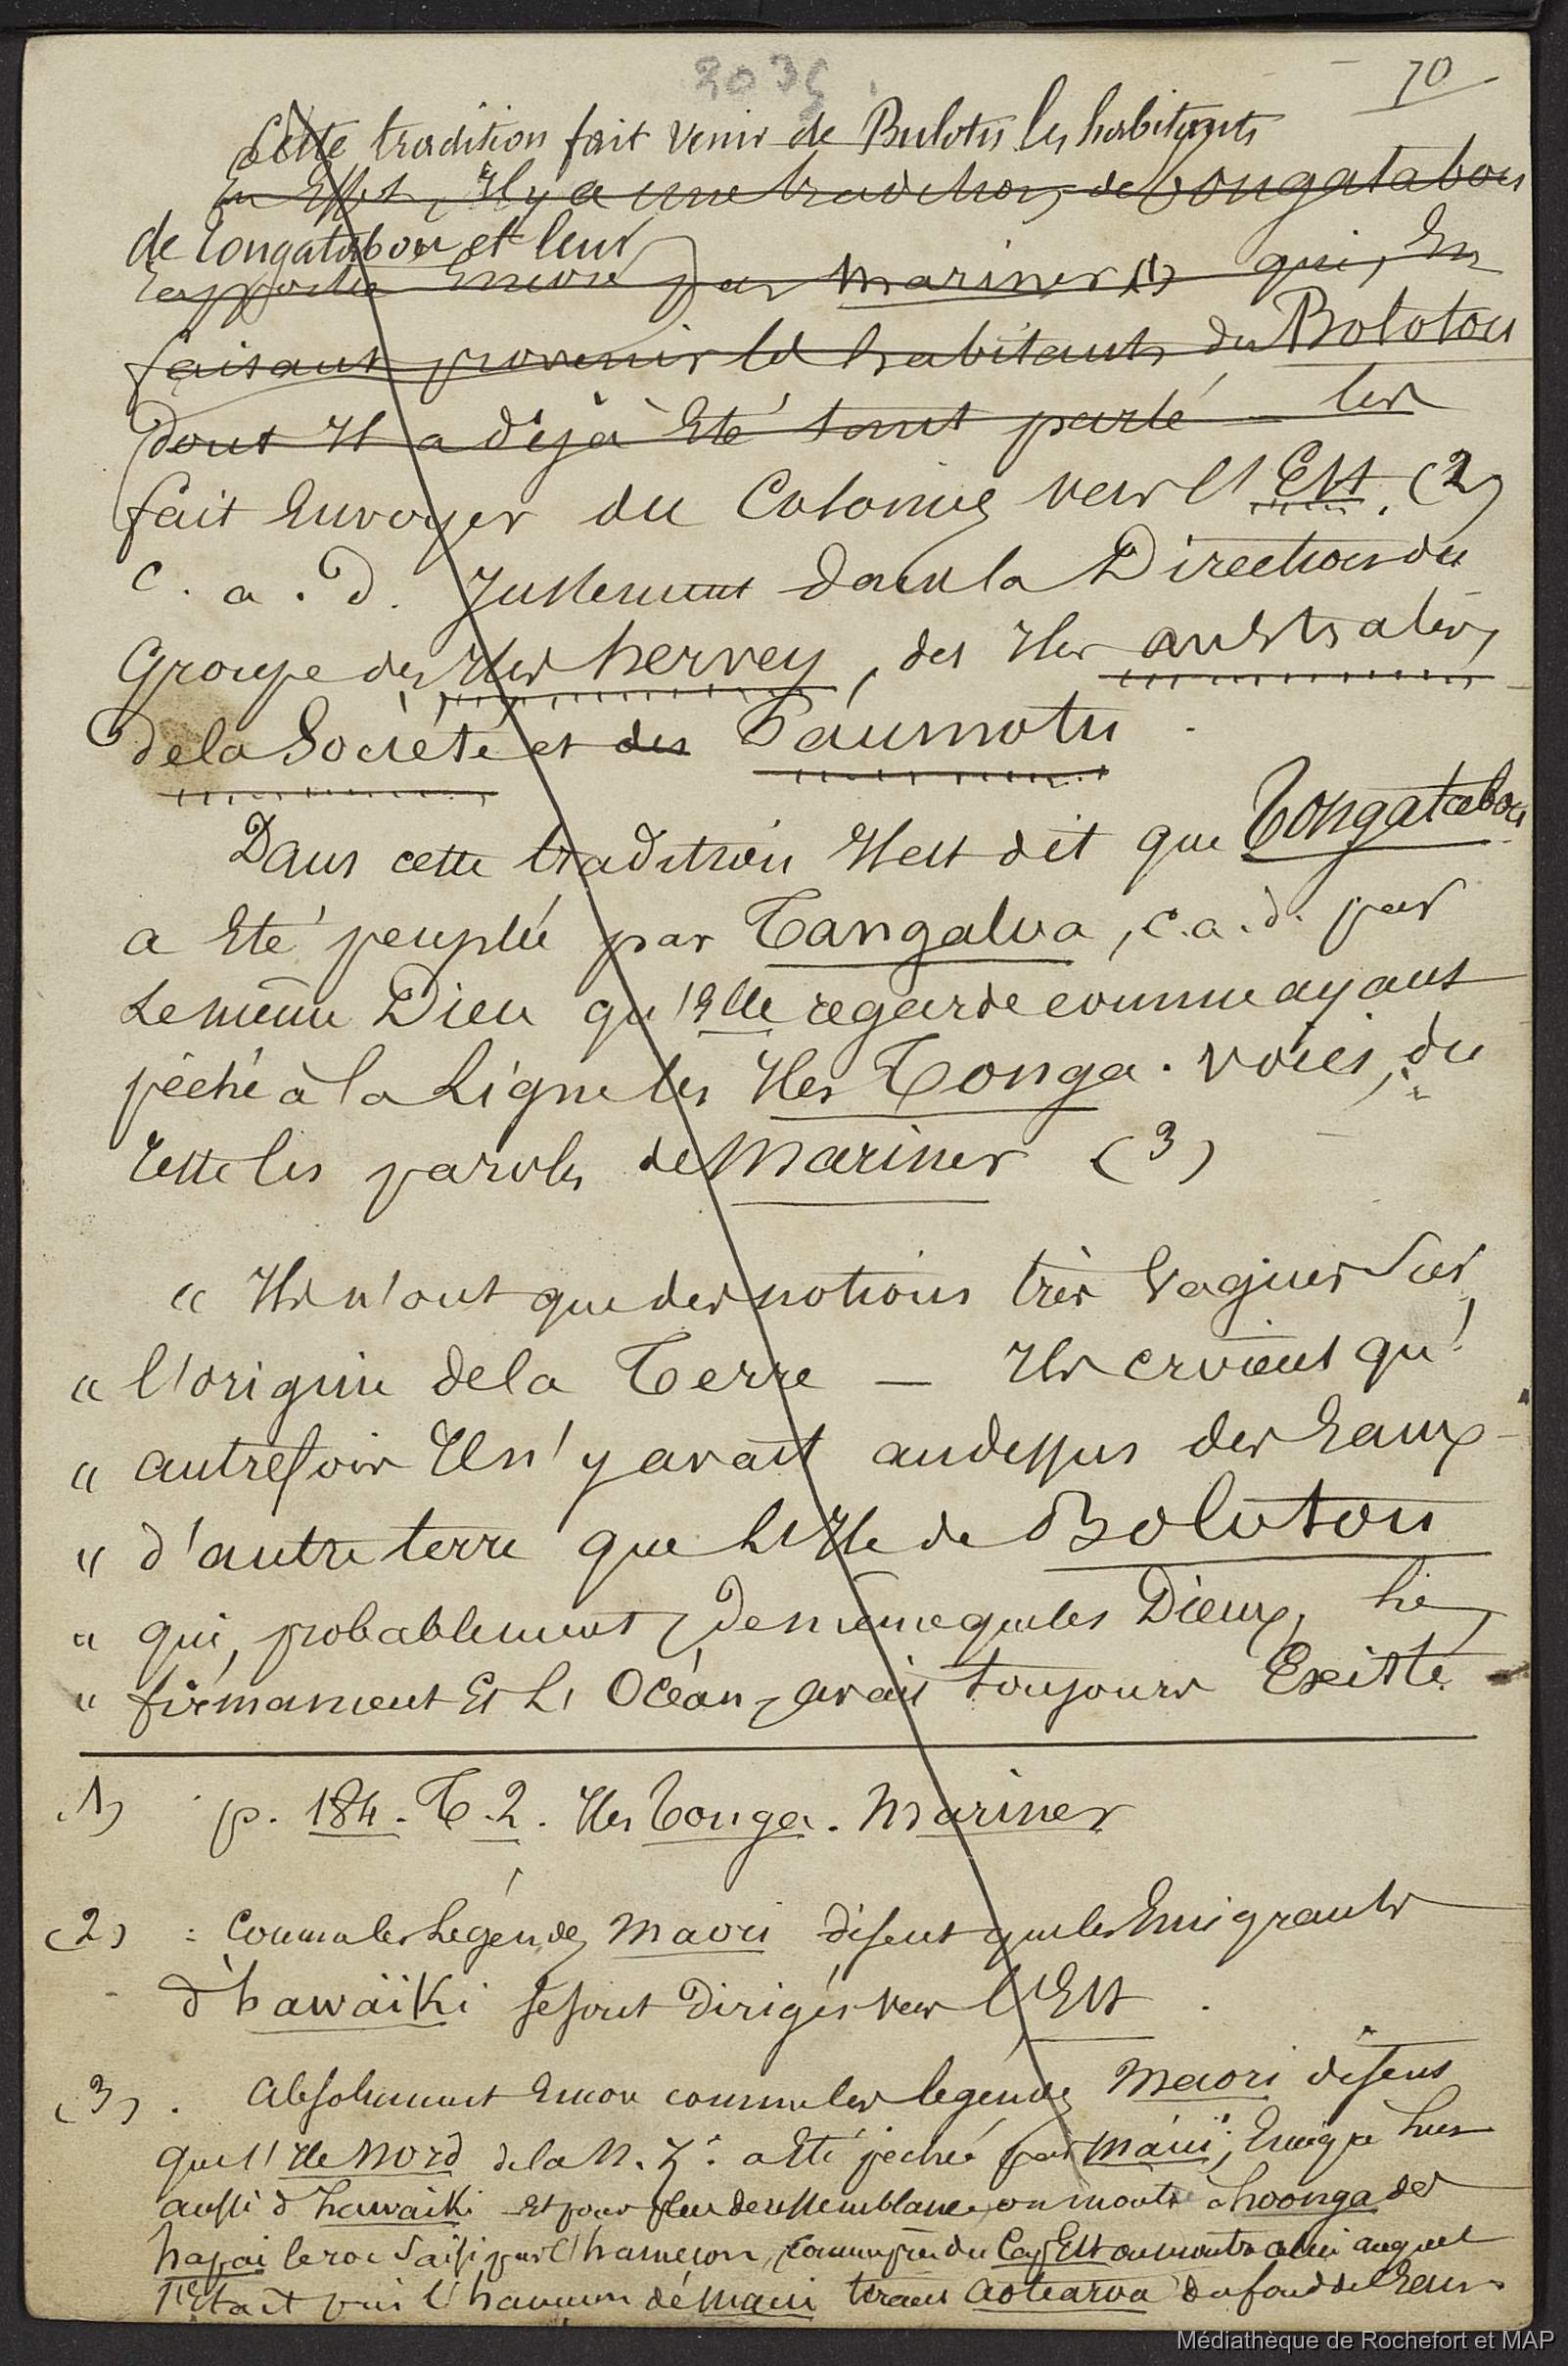 2035
70
Cette tradition fait venir de Bulotu les habitants
En Effet, Il y a une tradition, de Tongatabou
de Tongatabou et leur
rapportée Encore par Mariner (1) qui, En
faisant provenir les habitants du Bolotou
dont Il a déjà Eté tant parlé — leur
fait Envoyer des Colonies vers l'Est. (2)
C. a. D. Justement dans la Direction du
Groupe des Iles hervey, des Iles australes,
de la Société et des Paumotu.
Dans cette tradition Il est dit que Tongatabou
a Eté peuplé par Tangaloa, c.a.d. par
Le même Dieu qu'elle regarde comme ayant
pêché à la Ligne les Iles Tonga. voici, du
reste les paroles de Mariner (3)
« Ils n'ont que des notions très Vagues Sur
« l'origine de la Terre — Ils croient qu'
« autrefois Il n'y avait au dessus des Eaux
« d'autre terre que L'Ile de Bolotou
« qui, probablement, de même que les Dieux, le
« firmament Et L'Océan, avait toujours Existé
(1) p. 184. T. 2. Iles Tonga. Mariner
(2) : Comme les Légendes Maori disent que les Emigrants
d'hawaïki se sont Dirigés vers l'Est.
(3). Absolument Encore comme les légendes Maori disent
que l'Ile Nord de la N. Z. a Eté pechée par Maui, Emigré lui
aussi d'hawaïki Et pour plus de ressemblance, on montre à hoonga des
hapai le roc Saisi par l'hameçon, comme près du Cap Est on montre celui auquel
s'était pris l'hameçon de Maui tirant Aotearoa du fond des Eaux
Médiathèque de Rochefort et MAP